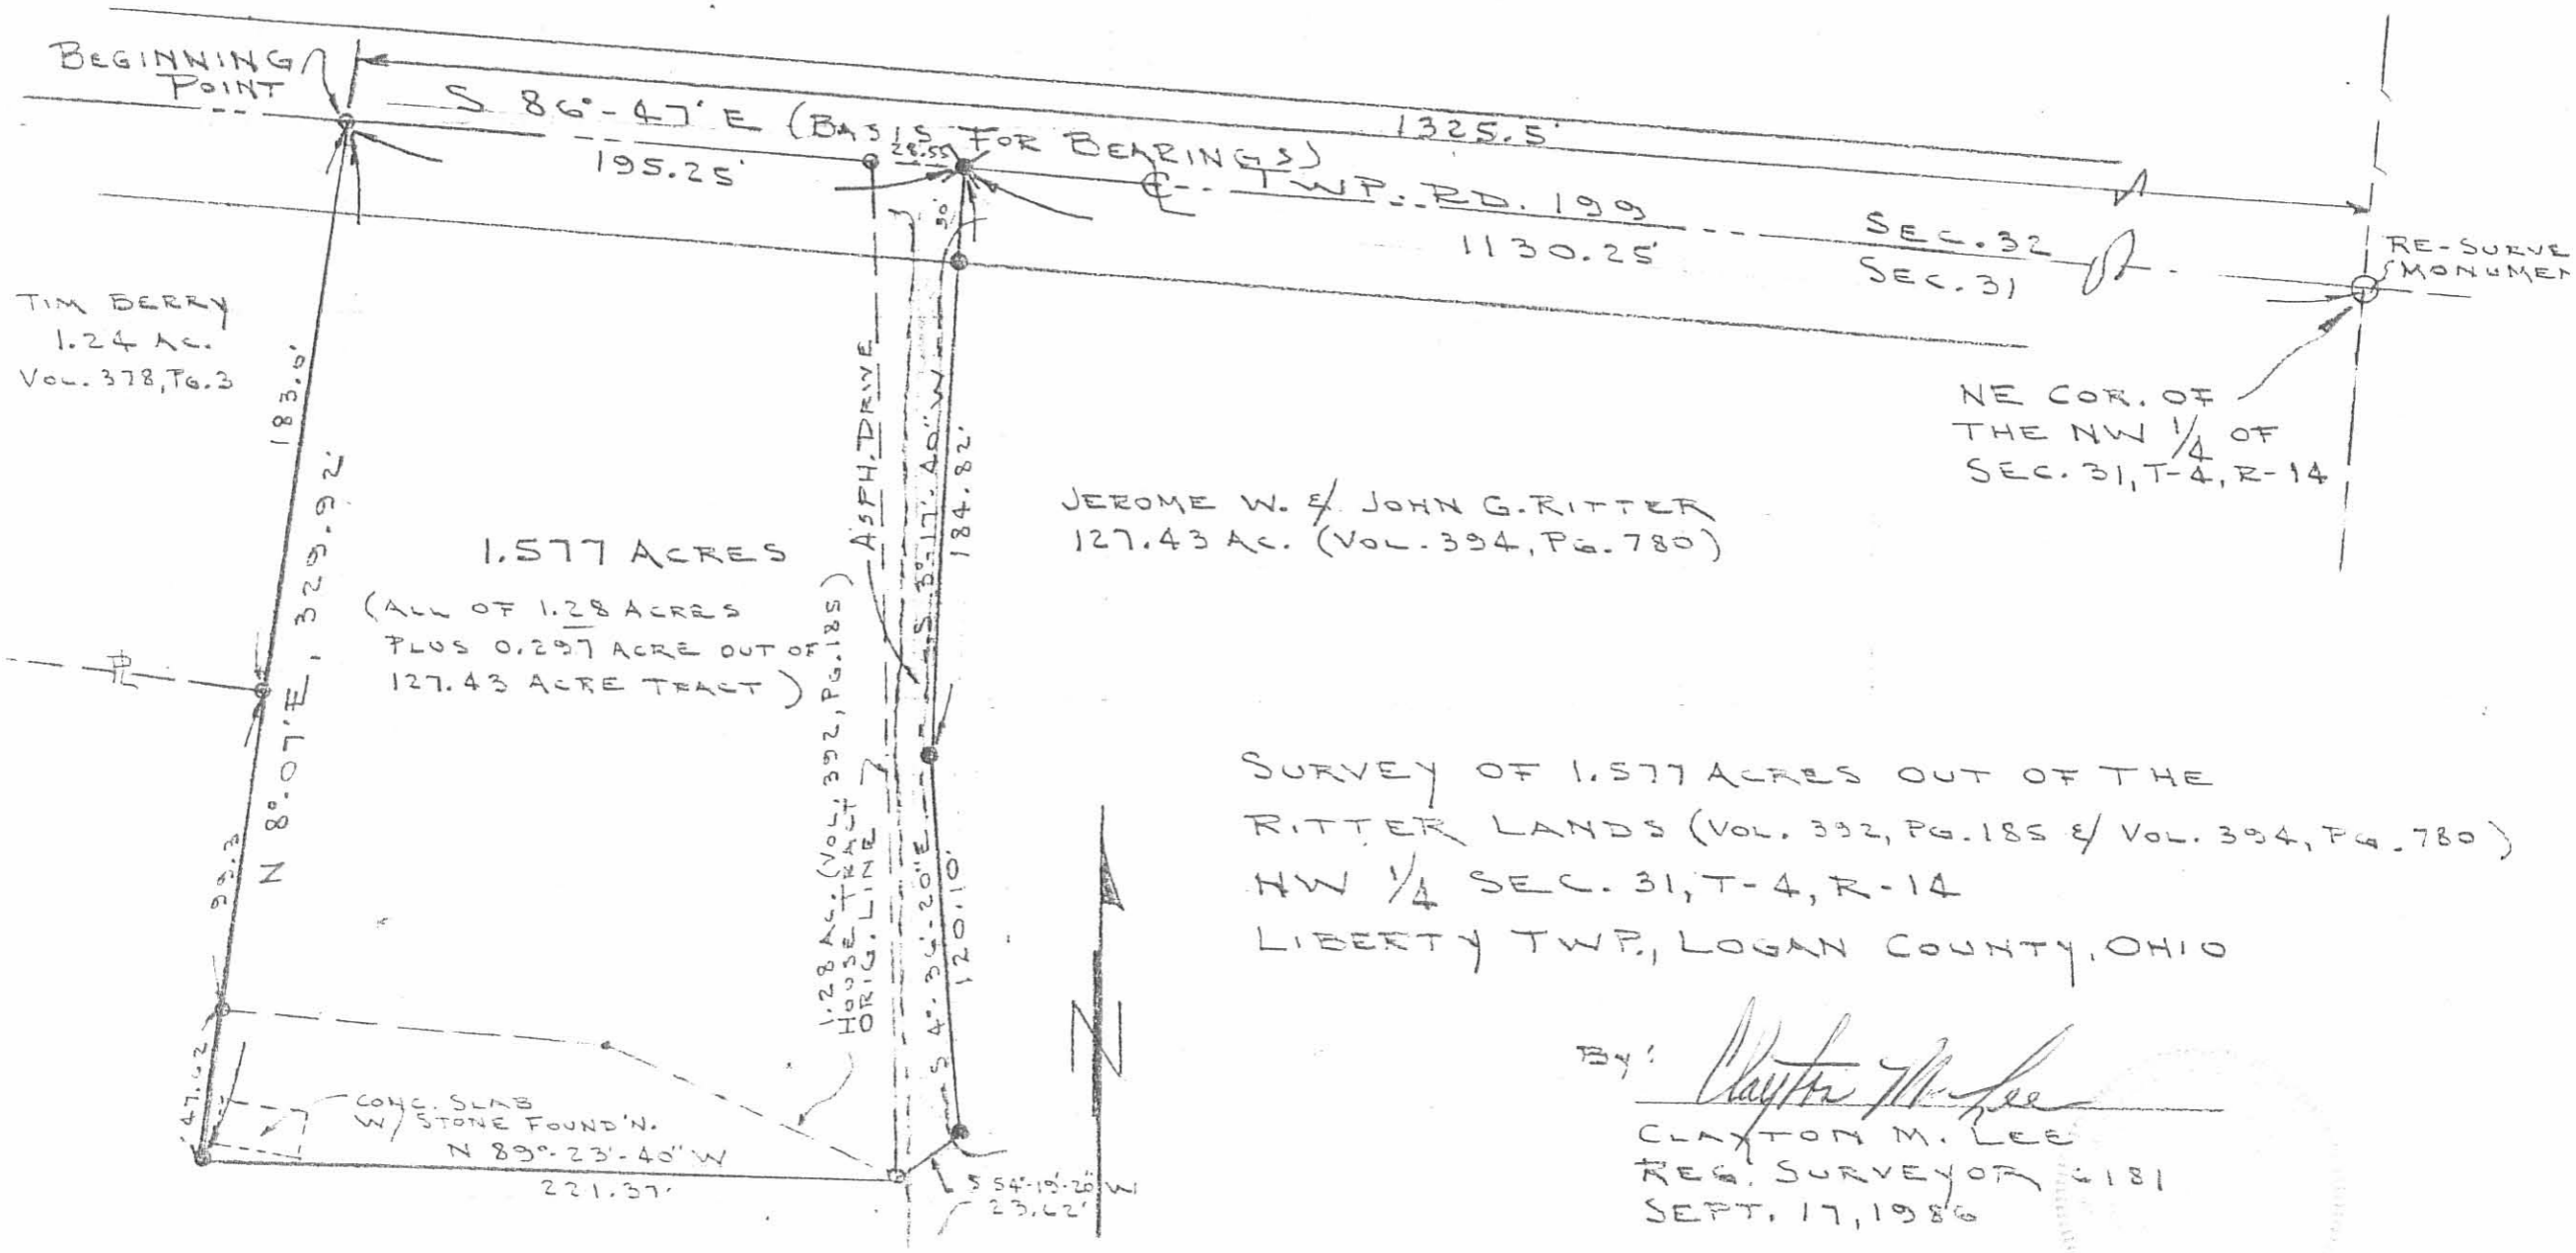 BEGINNING
POINT
S 86°-47' E (BASIS FOR BEARINGS)
1325.5'
195.25'
28.55'
℄ TWP. RD. 199
1130.25'
SEC. 32
SEC. 31
RE-SURVE
MONUMEN
NE COR. OF
THE NW 1/4 OF
SEC. 31, T-4, R-14
TIM BERRY
1.24 AC.
VOL. 378, PG. 3
183.0'
N 8°-07' E, 329.92'
99.3
47.62'
30'
ASPH. DRIVE
S 3°-17'-40" W
184.82'
1.577 ACRES
(ALL OF 1.28 ACRES
PLUS 0.297 ACRE OUT OF
127.43 ACRE TRACT)
JEROME W. & JOHN G. RITTER
127.43 AC. (VOL. 394, PG. 780)
PL
1.28 AC. (VOL. 392, PG. 185)
HOUSE TRACT
ORIG. LINE
S 4°-36'-20" E
120.10'
N
CONC. SLAB
W/ STONE FOUND'N.
N 89°-23'-40" W
221.37'
S 54°-19'-20" W
23.62'
SURVEY OF 1.577 ACRES OUT OF THE
RITTER LANDS (VOL. 392, PG. 185 & VOL. 394, PG. 780)
NW 1/4 SEC. 31, T-4, R-14
LIBERTY TWP., LOGAN COUNTY, OHIO
BY: Clayton M. Lee
CLAYTON M. LEE
REG. SURVEYOR 6181
SEPT. 17, 1986